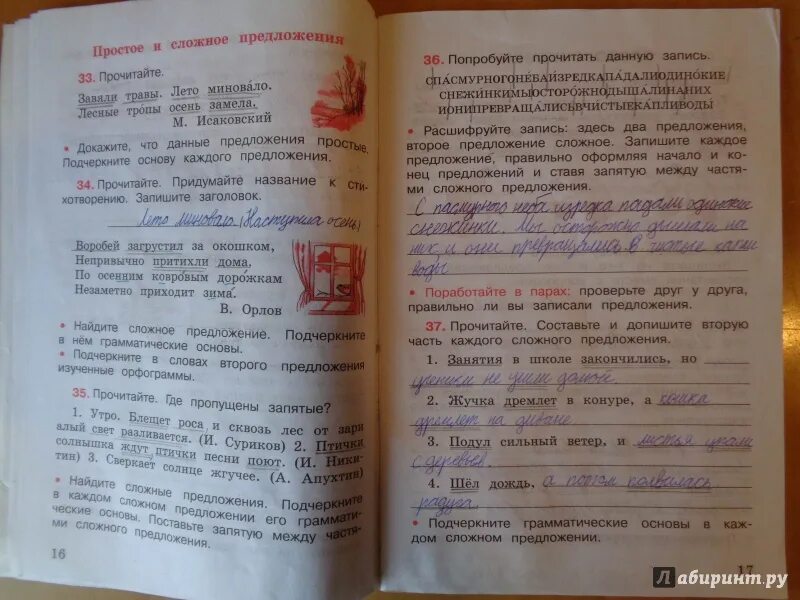 Простое и сложное предложения
33. Прочитайте.
Завяли травы. Лето миновало.
Лесные тропы осень замела.
М. Исаковский
• Докажите, что данные предложения простые.
Подчеркните основу каждого предложения.
34. Прочитайте. Придумайте название к сти-
хотворению. Запишите заголовок.
Лето миновало (Наступила осень)
Воробей загрустил за окошком,
Непривычно притихли дома.
По осенним ковровым дорожкам
Незаметно приходит зима.
В. Орлов
• Найдите сложное предложение. Подчеркните
в нём грамматические основы.
• Подчеркните в словах второго предложения
изученные орфограммы.
35. Прочитайте. Где пропущены запятые?
1. Утро. Блещет роса и сквозь лес от зари
алый свет разливается. (И. Суриков) 2. Птички
солнышка ждут птички песни поют. (И. Ники-
тин) 3. Сверкает солнце жгучее. (А. Апухтин)
• Найдите сложные предложения. Подчеркните
в каждом сложном предложении его граммати-
ческие основы. Поставьте запятую между частя-
ми сложного предложения.
16
36. Попробуйте прочитать данную запись.
СПАСМУРНОГОНЕБАИЗРЕДКАПАДАЛИОДИНОКИЕ
СНЕЖИНКИМЫОСТОРОЖНОДЫШАЛИНАНИХ
ИОНИПРЕВРАЩАЛИСЬВЧИСТЫЕКАПЛИВОДЫ
• Расшифруйте запись: здесь два предложения,
второе предложение сложное. Запишите каждое
предложение, правильно оформляя начало и ко-
нец предложений и ставя запятую между частя-
ми сложного предложения.
С пасмурного неба изредка падали одинокие
снежинки. Мы осторожно дышали на
них, и они превращались в чистые капли
воды.
• Поработайте в парах: проверьте друг у друга,
правильно ли вы записали предложения.
37. Прочитайте. Составьте и допишите вторую
часть каждого сложного предложения.
1. Занятия в школе закончились, но
ученики не ушли домой.
2. Жучка дремлет в конуре, а кошка
дремлет на диване.
3. Подул сильный ветер, и листья упали
с деревьев.
4. Шёл дождь, а потом появилась
радуга.
• Подчеркните грамматические основы в каж-
дом сложном предложении.
17
Лабиринт.ру